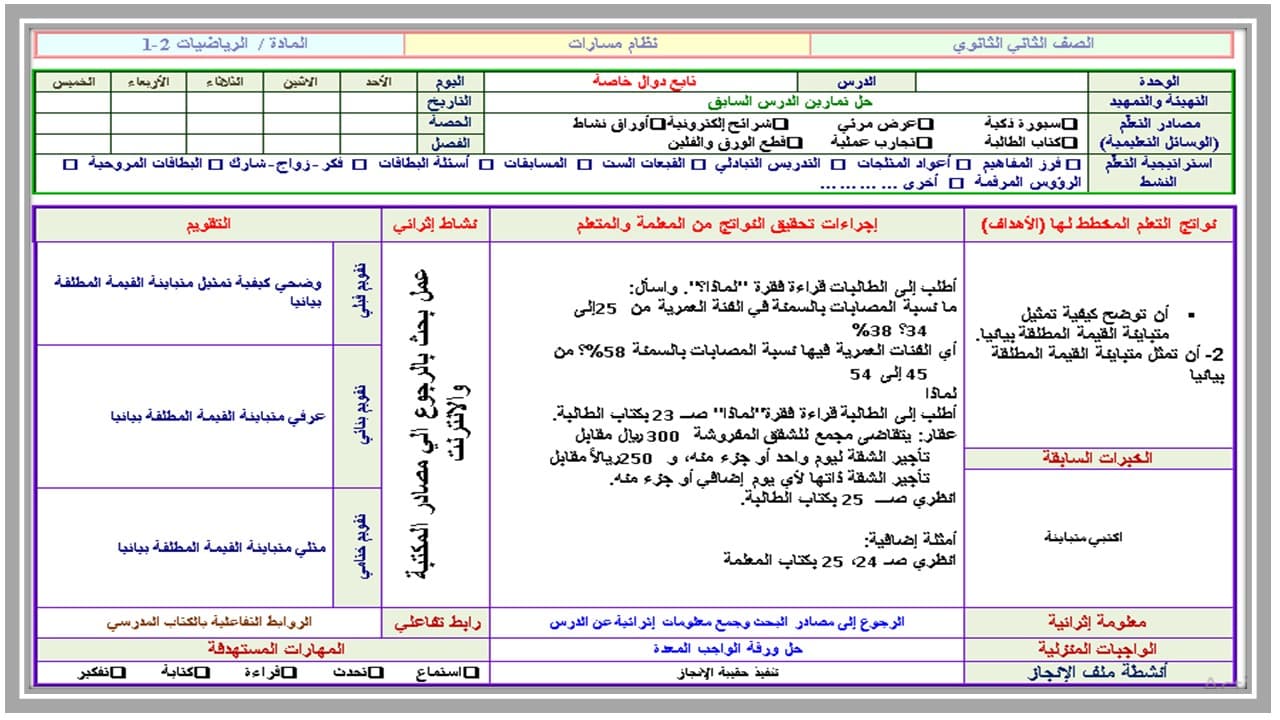 الصف الثاني الثانوي
نظام مسارات
المادة / الرياضيات 2-1
الوحدة
الدرس
تابع دوال خاصة
اليوم
الأحد
الاثنين
الثلاثاء
الأربعاء
الخميس
التهيئة والتمهيد
حل تمارين الدرس السابق
التاريخ
مصادر التعلّم
(الوسائل التعليمية)
❑سبورة ذكية ❑عرض مرئي ❑شرائح إلكترونية ❑أوراق نشاط
❑كتاب الطالبة ❑تجارب عملية ❑قطع الورق والفلين
الحصة
الفصل
استراتيجية التعلّم
النشط
□ فرز المفاهيم □ أعواد المثلجات □ التدريس التبادلي □ القبعات الست □ المسابقات □ أسئلة البطاقات □ فكر -زواج-شارك □ البطاقات المروحية □
الرؤوس المرقمة □ أخرى ... ... ... ...
نواتج التعلم المخطط لها (الأهداف)
إجراءات تحقيق النواتج من المعلمة والمتعلم
نشاط إثرائي
التقويم
▪ أن توضح كيفية تمثيل
متباينة القيمة المطلقة بيانيا.
2- أن تمثل متباينة القيمة المطلقة
بيانيا
الخبرات السابقة
اكتبي متباينة
أطلب إلى الطالبات قراءة فقرة "لماذا؟". واسأل:
ما نسبة المصابات بالسمنة في الفئة العمرية من 25إلى
34؟ 38%
أي الفئات العمرية فيها نسبة المصابات بالسمنة 58%؟ من
45 إلى 54
لماذا
أطلب إلى الطالبة قراءة فقرة"لماذا" صـ 23 بكتاب الطالبة.
عقار: يتقاضى مجمع للشقق المفروشة 300 ريال مقابل
تأجير الشقة ليوم واحد أو جزء منه، و 250ريالاً مقابل
تأجير الشقة ذاتها لأي يوم إضافي أو جزء منه.
انظري صــ 25 بكتاب الطالبة.
أمثلة إضافية:
انظري صـ 24، 25 بكتاب المعلمة
عمل بحث بالرجوع الي مصادر المكتبة
والانترنت
تقويم قبلي
وضحي كيفية تمثيل متباينة القيمة المطلقة
بيانيا
تقويم بنائي
عرفي متباينة القيمة المطلقة بيانيا
تقويم ختامي
مثلي متباينة القيمة المطلقة بيانيا
معلومة إثرائية
الرجوع إلى مصادر البحث وجمع معلومات إثرائية عن الدرس
رابط تفاعلي
الروابط التفاعلية بالكتاب المدرسي
الواجبات المنزلية
حل ورقة الواجب المعدة
المهارات المستهدفة
أنشطة ملف الإنجاز
تنفيذ حقيبة الإنجاز
❑استماع ❑تحدث ❑قراءة ❑كتابة ❑تفكير